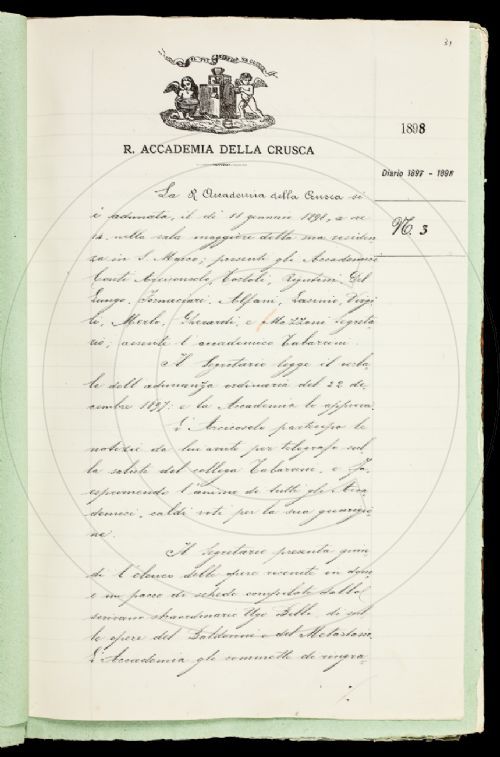 31
R. ACCADEMIA DELLA CRUSCA
1898
Diario 1897 - 1898
N. 3
La R. Accademia della Crusca si
è adunata, il dì 11 gennaio 1898, a se
ra, nella sala maggiore della sua residen
za in S. Marco; presenti gli Accademici
Conti Arciconsolo, Tortoli, Rigutini, Del
Lungo, Fornaciari, Alfani, Lasinio, Virgi
li, Merlo, Gherardi, e Mazzoni Segreta
rio; assente l'accademico Tabarrini.
Il Segretario legge il verba
le dell'adunanza ordinaria del 22 de-
cembre 1897: e la Accademia lo approva.
L'Arciconsolo partecipa le
notizie da lui avute per telegrafo sul
la salute del collega Tabarrini, e fa,
esprimendo l'animo di tutti gli Acca
demici, caldi voti per la sua guarigio
ne.
Il Segretario presenta quin
di l'elenco delle opere ricevute in dono
e un pacco di schede compilate dallo
scrivano straordinario Ugo Bella di sul
le opere del Baldovini e del Metastasio.
L'Accademia gli commette di ringra-